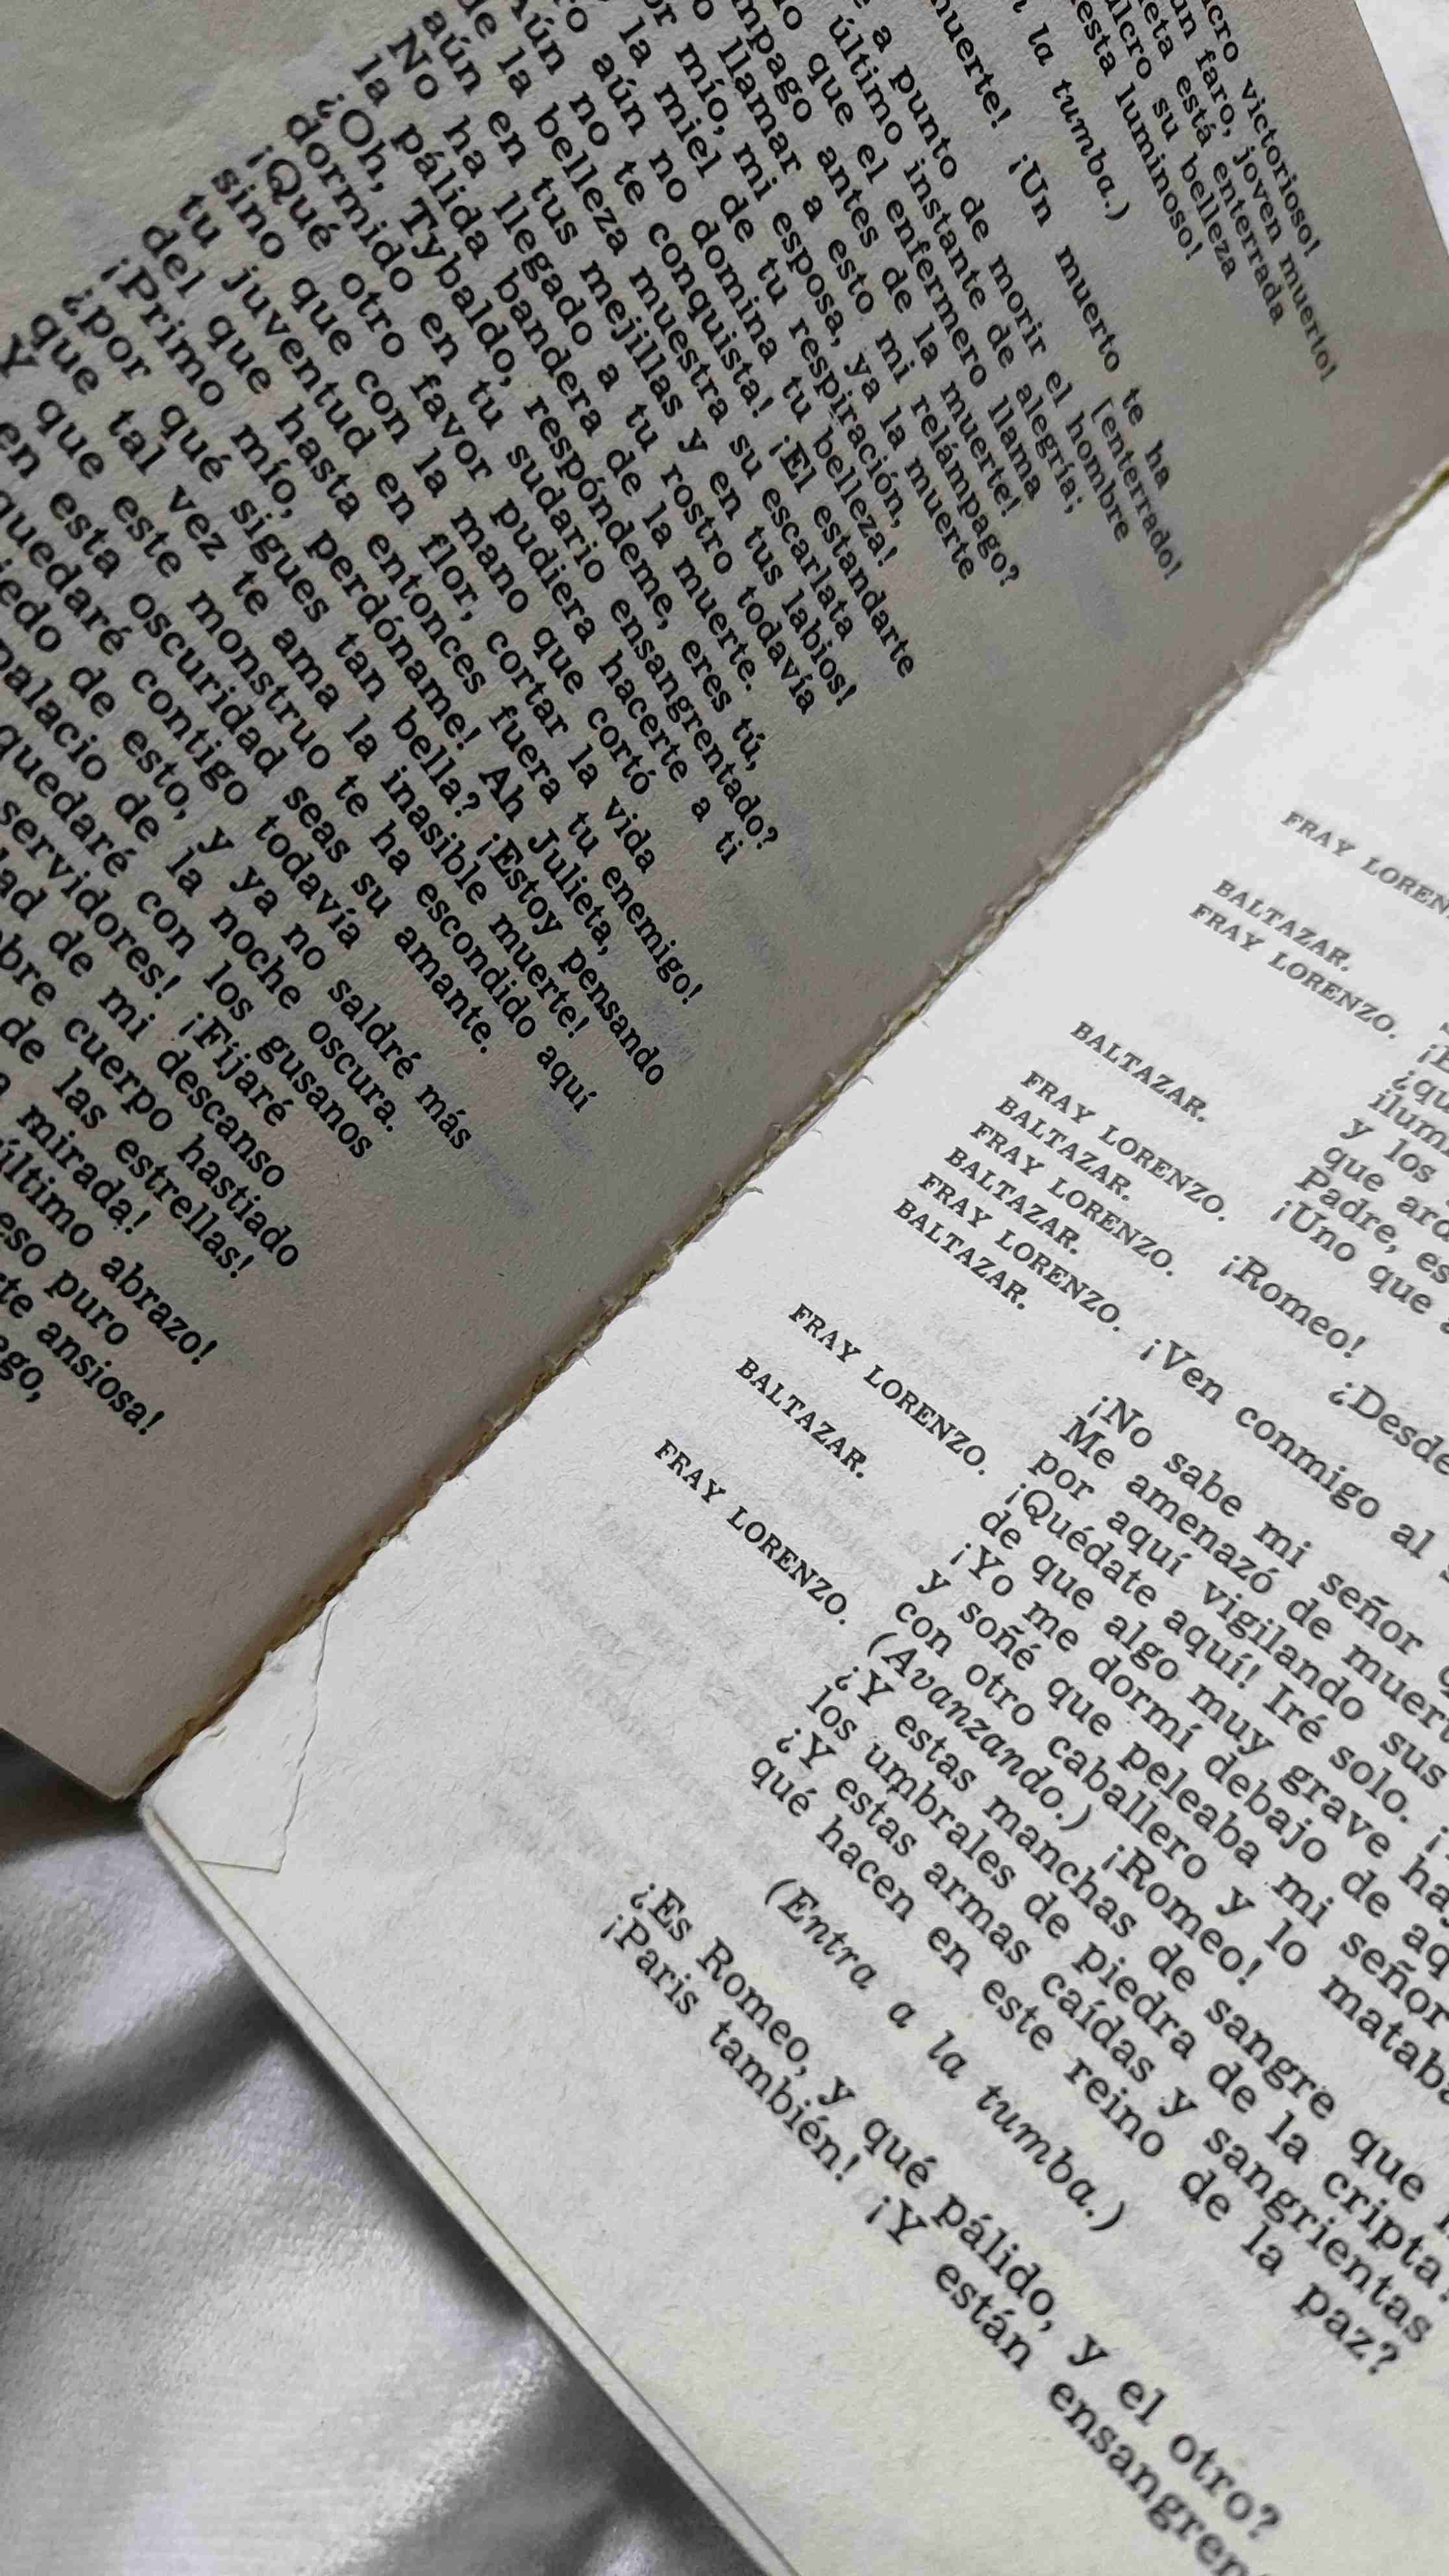 victorioso!
un faro, joven muerto!
está enterrada
su belleza
esta luminoso!
la tumba.)
muerte! ¡Un muerto te ha
[enterrado!
a punto de morir el hombre
último instante de alegría;
que el enfermero llama
antes de la muerte!
llamar a esto mi relámpago?
mío, mi esposa, ya la muerte
la miel de tu respiración,
aún no domina tu belleza!
no te conquista! ¡El estandarte
de la belleza muestra su escarlata
aún en tus mejillas y en tus labios!
No ha llegado a tu rostro todavía
la pálida bandera de la muerte.
¿Oh, Tybaldo, respóndeme, eres tú,
dormido en tu sudario ensangrentado?
¡Qué otro favor pudiera hacerte a ti
sino que con la mano que cortó
tu juventud en flor, cortar la vida
del que hasta entonces fuera tu enemigo!
¡Primo mío, perdóname! Ah Julieta,
¿por qué sigues tan bella? ¡Estoy pensando
que tal vez te ama la inasible muerte!
Y que este monstruo te ha escondido aquí
en esta oscuridad seas su amante.
quedaré contigo todavía
de esto, y ya no saldré más
palacio de la noche oscura.
quedaré con los gusanos
servidores! ¡Fijaré
de mi descanso
cuerpo hastiado
de las estrellas!
mirada!
último abrazo!
puro
ansiosa!
FRAY
BALTAZAR.
FRAY LORENZO.
y los
que
BALTAZAR. Padre,
FRAY LORENZO. ¡Uno que
BALTAZAR.
FRAY LORENZO. ¡Romeo!
BALTAZAR.
FRAY LORENZO. ¡Ven conmigo al
BALTAZAR.
¡No sabe mi señor
Me amenazó de
por aquí vigilando sus
FRAY LORENZO. ¡Quédate aquí! Iré solo.
de que algo muy grave
BALTAZAR. ¡Yo me dormí debajo de
y soñé que peleaba mi señor
con otro caballero y lo
FRAY LORENZO. (Avanzando.) ¡Romeo!
¿Y estas manchas de sangre que
los umbrales de piedra de la cripta?
¿Y estas armas caídas y sangrientas
qué hacen en este reino de la paz?
(Entra a la tumba.)
¿Es Romeo, y qué pálido, y el otro?
¡Paris también! ¡Y están